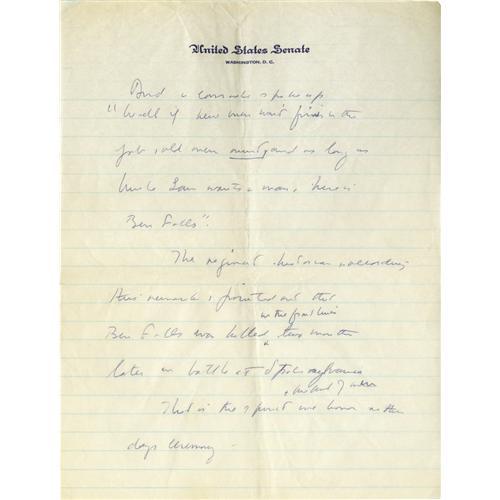 United States Senate
WASHINGTON, D. C.
And a comrade spoke up
"Well if new men won't finish the
job, old men must and as long as
Uncle Sam wants a man, here is
Ben Falls".
The regiment historian recording
this remark, pointed out that
in the front lines
Ben Falls was killed two months
later in battle at Spotsylvania
That is the spirit we honor at this
days ceremony -